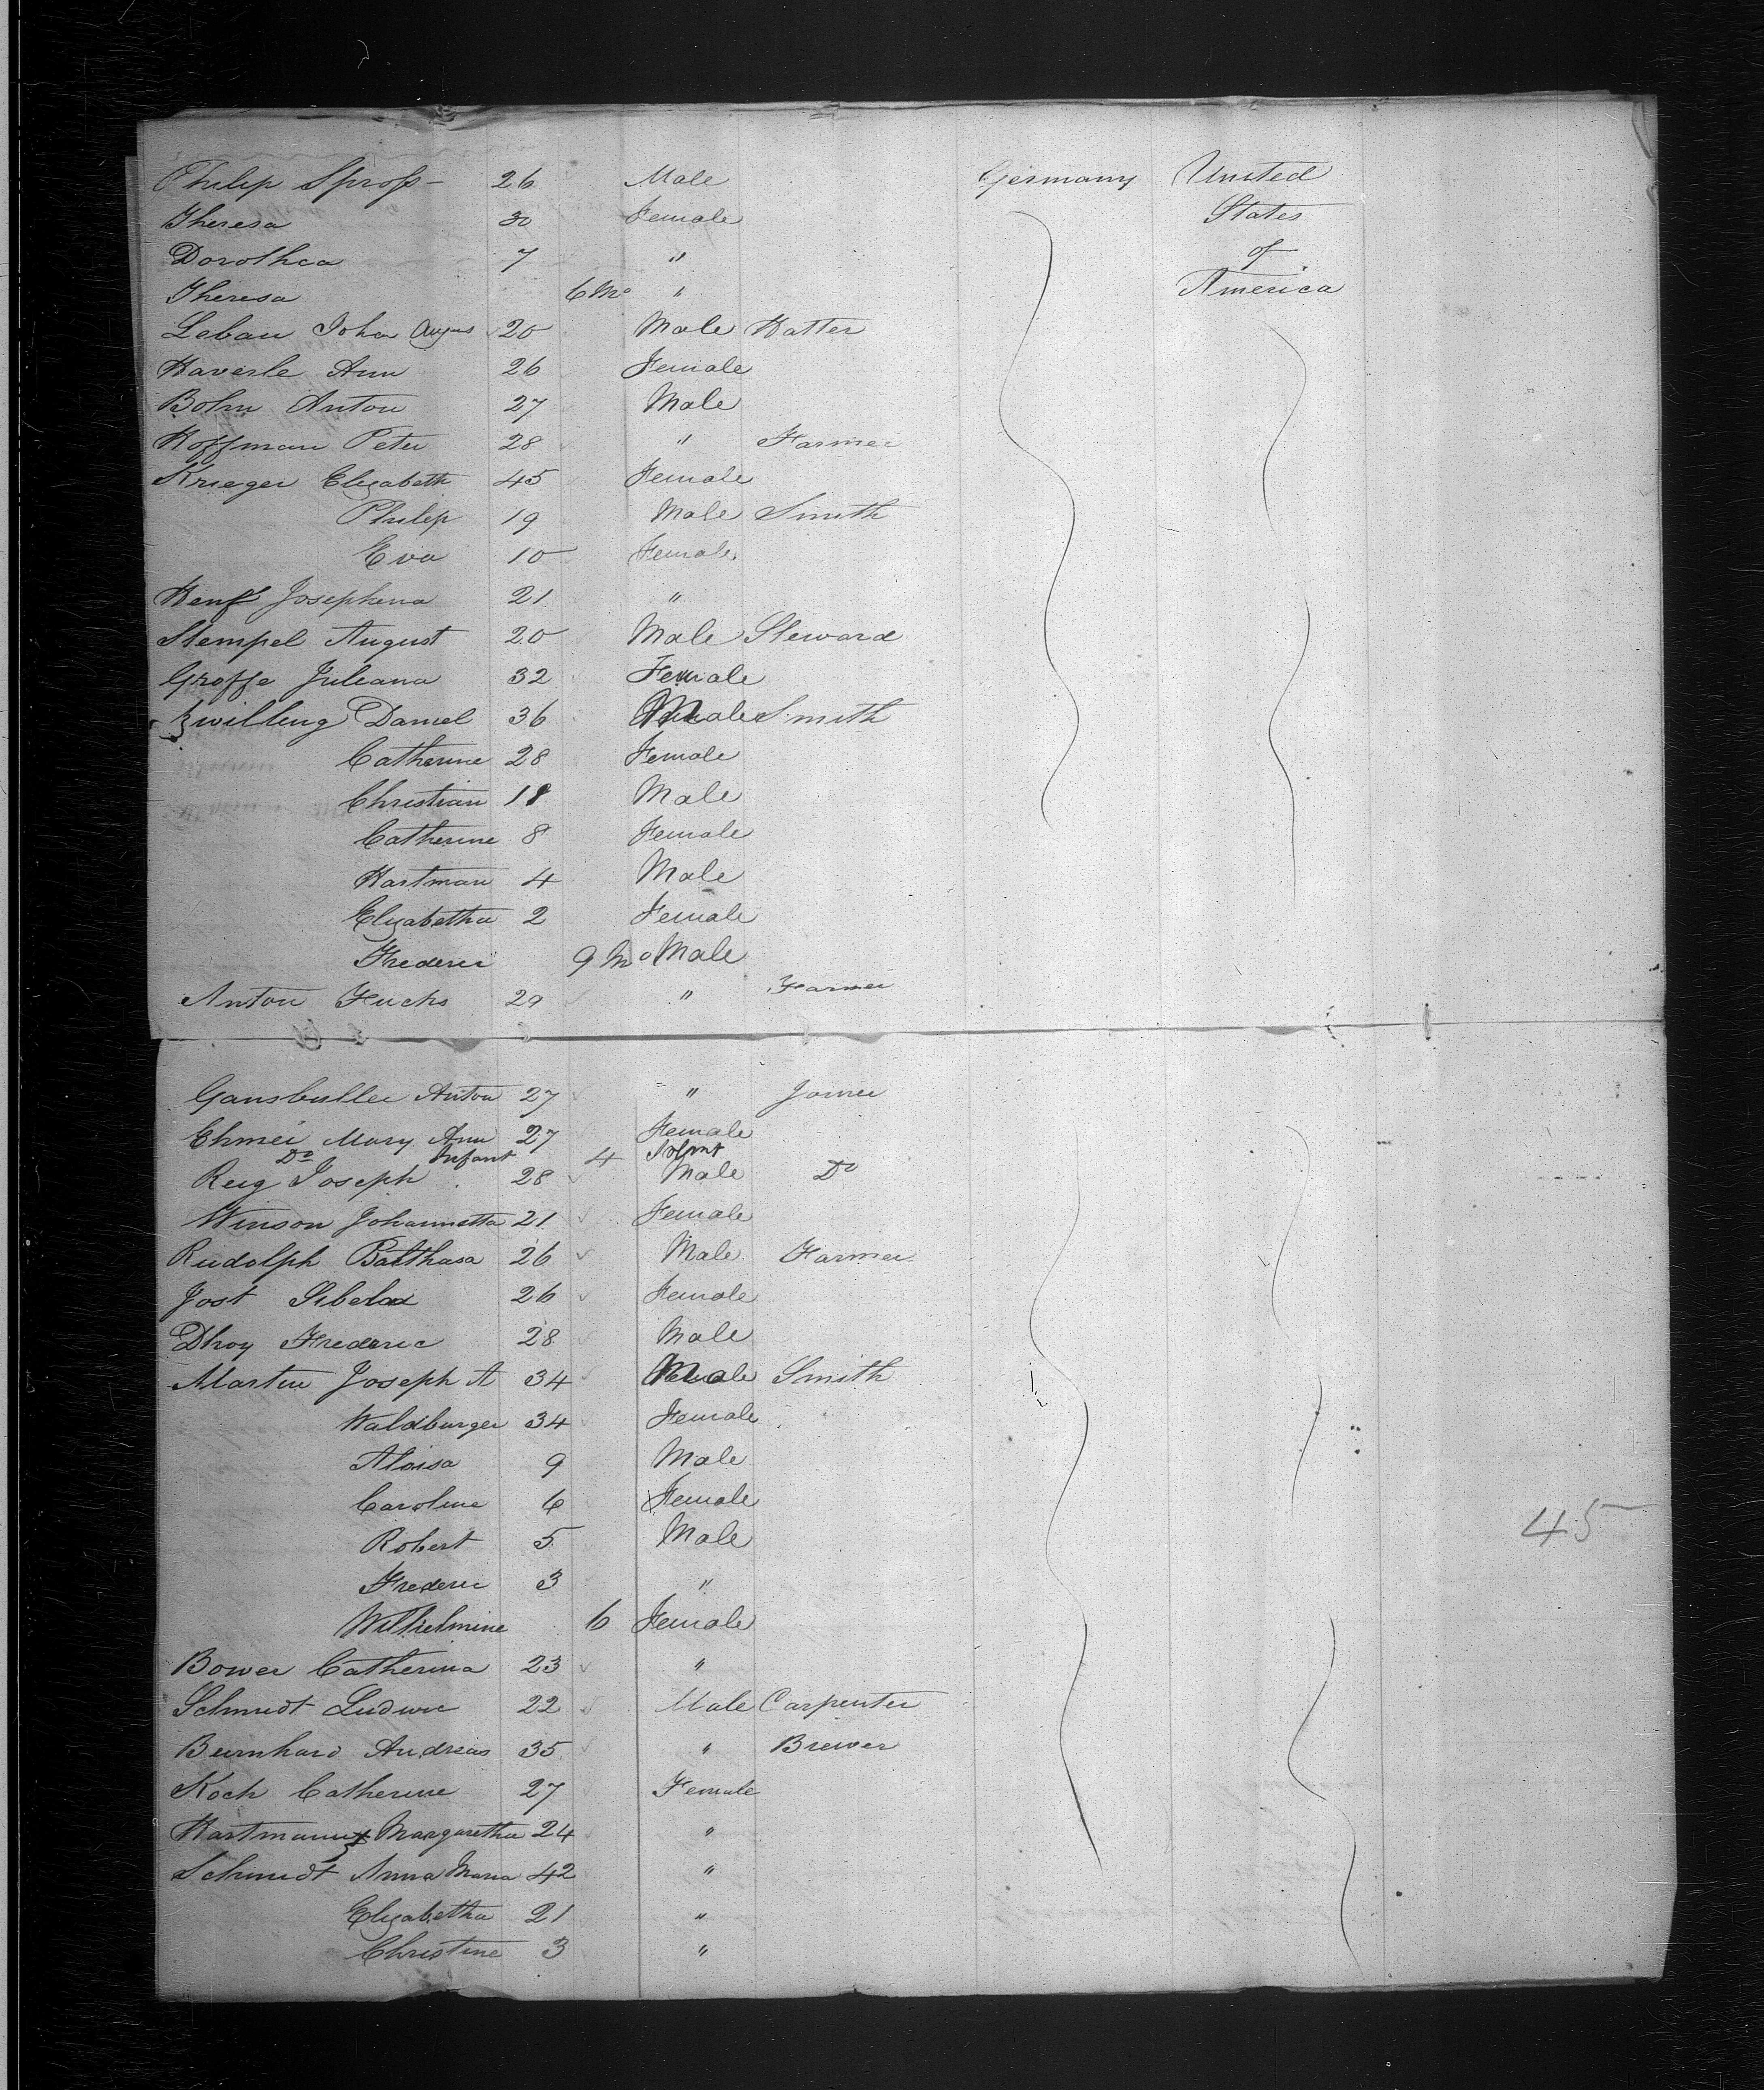 Philip Spross - 26 Male Germany United
Theresa 30 Female States
Dorothea 7 " of
Theresa 6 Mo " America
Lebau John Augus 20 Male Hatter
Haverle Ann 26 Female
Bohn Anton 27 Male
Hoffman Peter 28 " Farmer
Krieger Elizabeth 45 Female
Philip 19 Male Smith
Eva 10 Female
Henf Josephena 21 "
Stempel August 20 Male Steward
Grosse Juleana 32 Female
Zwilling Daniel 36 Male Smith
Catherine 28 Female
Christian 18 Male
Catherine 8 Female
Hartman 4 Male
Elizabetha 2 Female
Frederic 9 Mo Male
Anton Fuchs 29 " Farmer
Gansbuller Anton 27 " Joiner
Ehmei Mary Ann 27 Female
Do Infant 4 Infant
Reig Joseph 28 Male Do
Winson Johannetta 21 Female
Rudolph Balthasa 26 Male Farmer
Jost Sibela 26 Female
Dhoy Frederic 28 Male
Martin Joseph A 34 Male Smith
Waldburger 34 Female
Aloisa 9 Male
Caroline 6 Female
Robert 5 Male
45
Frederic 3 "
Wilhelmine 6 Female
Bower Catherina 23 "
Schmidt Ludwic 22 Male Carpenter
Burnhard Andreas 35 " Brewer
Koch Catherine 27 Female
Hartmann Margaretha 24 "
Schmidt Anna Maria 42 "
Elizabetha 21 "
Christine 3 "